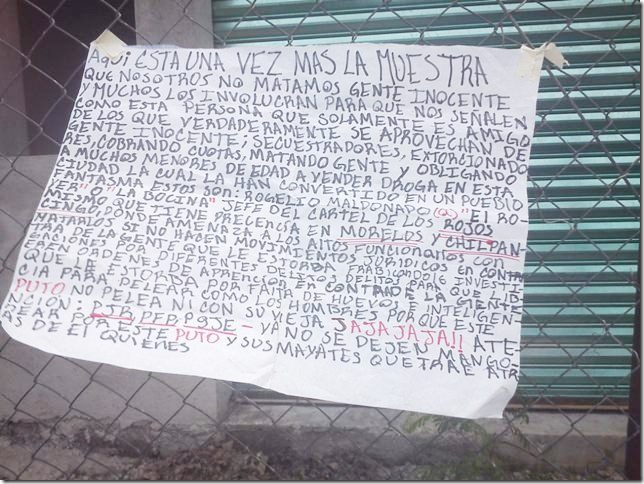 AQUI ESTA UNA VEZ MAS LA MUESTRA
QUE NOSOTROS NO MATAMOS GENTE INOCENTE
Y MUCHOS LOS INVOLUCRAN PARA QUE NOS SEÑALEN
COMO ESTA PERSONA QUE SOLAMENTE ES AMIGO
DE LOS QUE VERDADERAMENTE SE APROVECHAN DE
GENTE INOCENTE; SECUESTRADORES, EXTORCIONADO
RES COBRANDO CUOTAS, MATANDO GENTE Y OBLIGANDO
A MUCHOS MENORES DE EDAD A VENDER DROGA EN ESTA
CIUDAD LA CUAL LA HAN CONVERTIDO EN UN PUEBLO
FANTASMA ESTOS SON: ROGELIO MALDONADO (A) "EL RO-
"LA BOCINA" JEFE DEL CARTEL DE LOS ROJOS
MISMO QUE TIENE PRECENCIA EN MORELOS Y CHILPAN-
CINGO DONDE AMENAZA A LOS ALTOS FUNCIONARIOS CON
SI NO HACEN MOVIMIENTOS JURIDICOS EN CONTRA
DE LA GENTE QUE LE ESTORBA FABRICANDOLE INVESTI-
GACIONES
ORDENES DIFERENTES DELITOS PARA QUE
QUE LE ESTORBA DE APREHENCION EN CONTRA DE LA GENTE
PARA PELEAR POR FALTA DE HUEVOS E INTELIGEN-
CIA
PUTO NO PELEA COMO LOS HOMBRES PORQUE ESTE
NI CON SU VIEJA JAJAJAJA!! ATE-
NCION: YA NO SE DEJEN MANGO-
NEAR POR ESTE PUTO Y SUS MAYATES QUE TRAE ATR
AS DE EL QUIENES